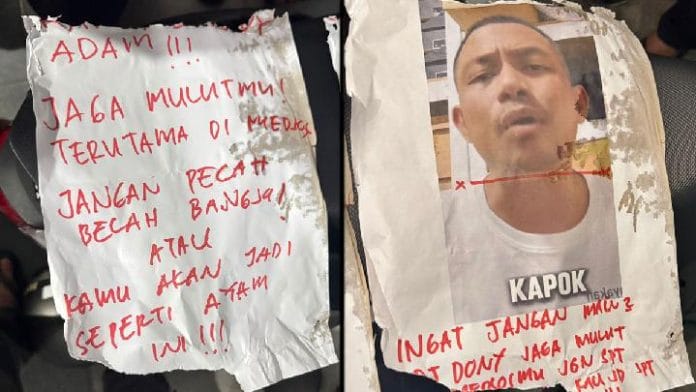 ADAM!!!
JAGA MULUTMU!
TERUTAMA DI MEDSOS
JANGAN PECAH
BECAH BANGSA!
ATAU
KAMU AKAN JADI
SEPERTI AYAM
INI!!!
KAPOK
INGAT JANGAN
DJ DONY JAGA MULUT
JGN SPT
KAU JD SPT